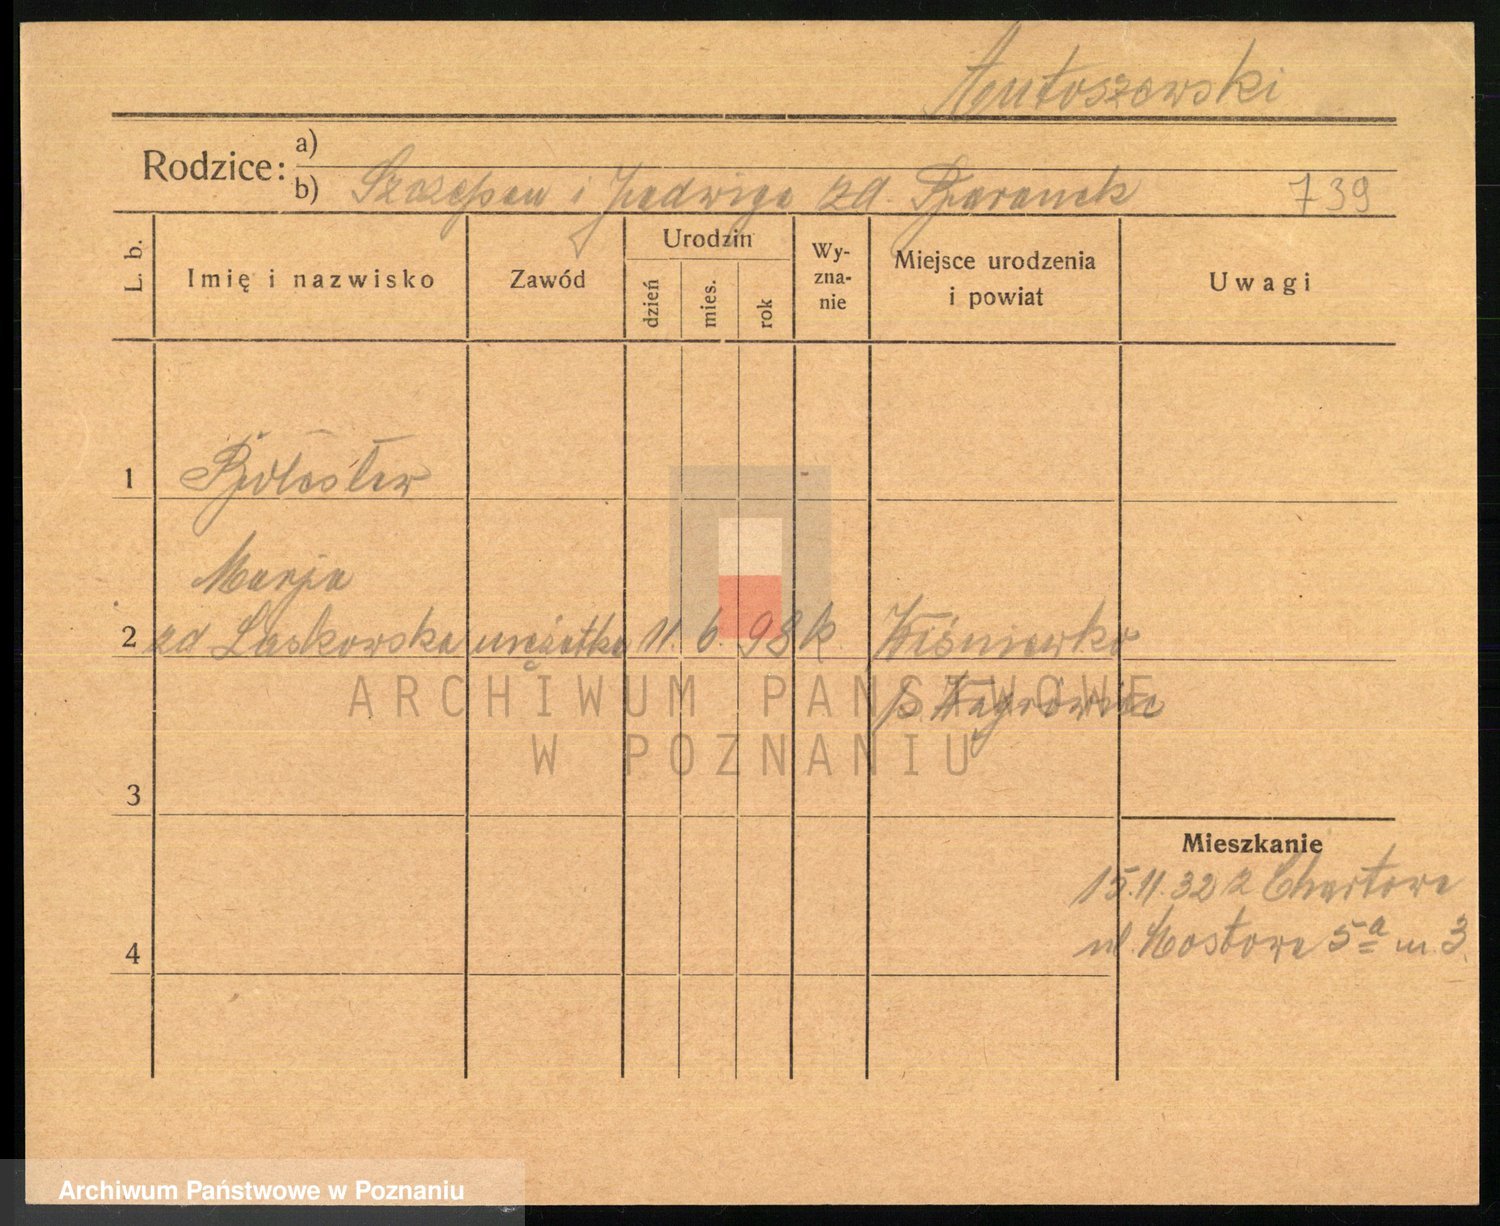 Antoszewski
Rodzice: a)
b) Szczepan i Jadwiga zd. Baranek 739
L. b. Imię i nazwisko Zawód Urodzin dzień mies. rok Wy-zna-nie Miejsce urodzenia i powiat Uwagi
1 Bolesław
Marja
2 zd Laskowska urzędtka 11. 6. 98 k Wiśniewko
p. Wągrowiec
3
Mieszkanie
15.11.32 z Chartowa
4 ul. Mostowa 5a m. 3.
ARCHIWUM PAŃSTWOWE
W POZNANIU
Archiwum Państwowe w Poznaniu